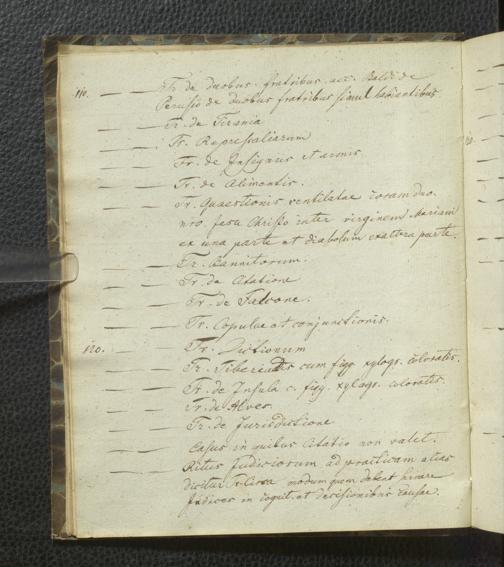 110. — — Tr. de Duobus fratribus acc. Baldi de
Perusio de duobus fratribus simul habitantibus
— — Tr. de Tirania
— — Tr. Represaliarum
— — Tr. de Insignus et armis
— — Tr. de Alimentis.
— — Tr. Quaestionis ventilatae coram duo.
nro. Jesu Christo inter virginem Mariam
ex una parte et diabolum ex altera parte.
— — Tr. Bannitorum.
— — Tr. de Citatione
— — Tr. de Falcone.
— — Tr. Copulae et conjunctionis.
120. — — Tr. Dictionum
— — Tr. Tiberiadis cum figg. xylogr. coloratis.
— — Tr. de Insula c. figg. xylogr. coloratis.
— — Tr. de Alveo
— — Tr. de Jurisdictione
— — Casus in quibus Citatio non valet.
— — Ritus Judiciorum ad practicam alias
dicitur Tr. Circa modum quem debent servare
Judices in cognit. et decisionibus Causae.